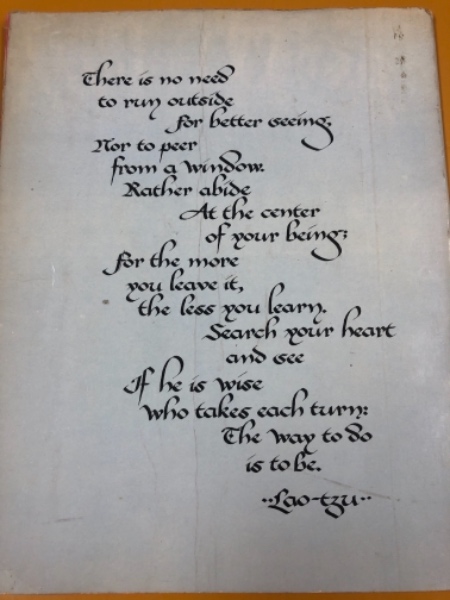 There is no need
to run outside
For better seeing,
Nor to peer
from a window.
Rather abide
At the center
of your being;
For the more
you leave it,
the less you learn.
Search your heart
and see
If he is wise
who takes each turn:
The way to do
is to be.
··Lao-tzu··